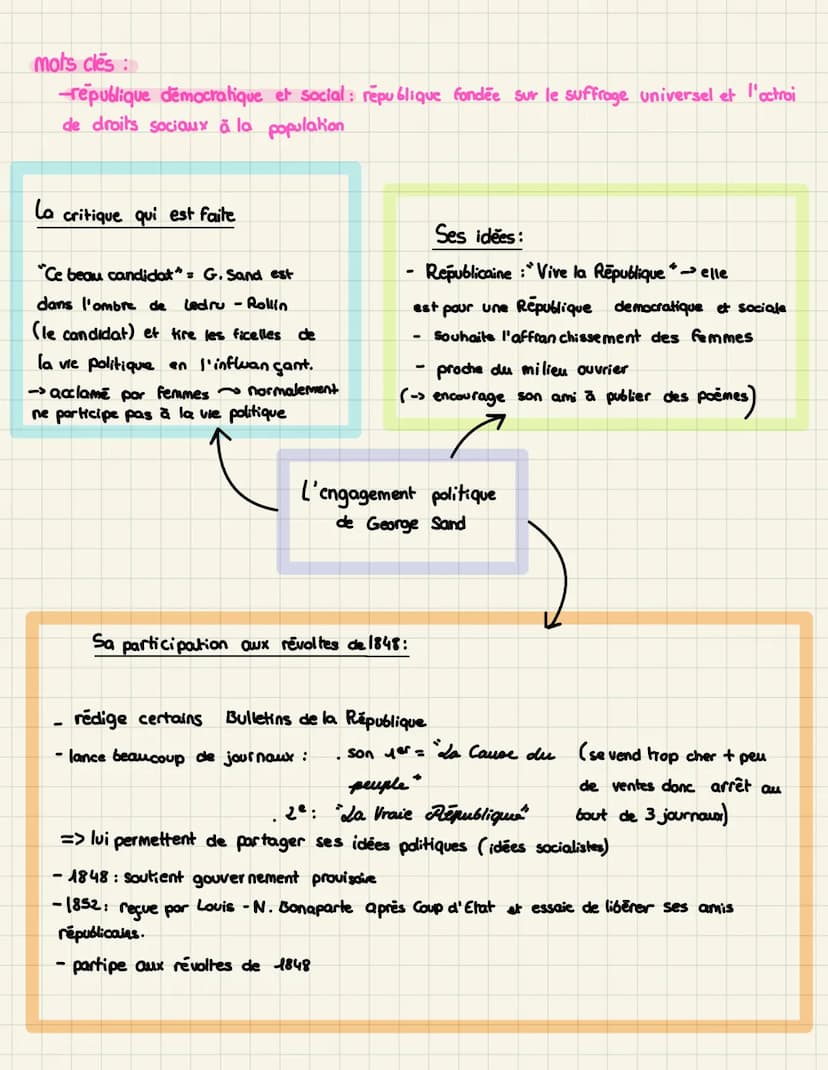 mots clés :
→république démocratique et social : république fondée sur le suffrage universel et l'octroi
de droits sociaux à la population
La critique qui est faite
"Ce beau candidat" = G. Sand est
dans l'ombre de Ledru - Rollin
(le candidat) et tire les ficelles de
la vie politique en l'influançant.
→ acclamé par femmes ⇝ normalement
ne participe pas à la vie politique
Ses idées :
- Républicaine : "Vive la République" → elle
est pour une République democratique et sociale
- souhaite l'affranchissement des femmes
- proche du milieu ouvrier
(→ encourage son ami à publier des poèmes)
L'engagement politique
de George Sand
Sa participation aux révoltes de 1848 :
- rédige certains Bulletins de la République
- lance beaucoup de journaux : . son 1er = "La Cause du (se vend trop cher + peu
peuple" de ventes donc arrêt au
. 2e : "La Vraie République" bout de 3 journaux)
=> lui permettent de partager ses idées politiques (idées socialistes)
- 1848 : soutient gouvernement provisoire
- 1852 : reçue par Louis - N. Bonaparte après Coup d'Etat et essaie de libérer ses amis
républicains.
- partipe aux révoltes de 1848